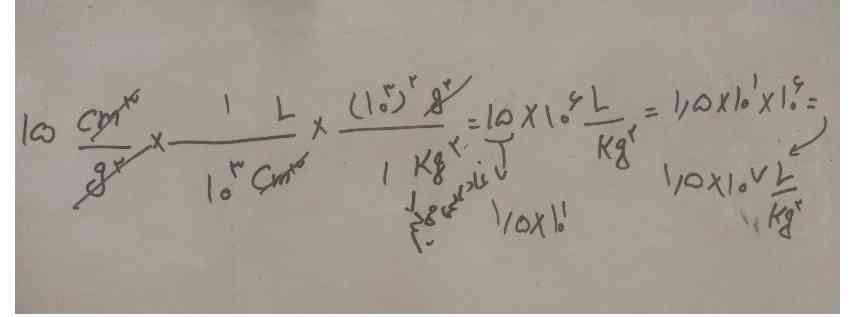 ۱۵ cm³/g² × ۱ L/۱۰^۳ cm^۳ × (۱۰^۳)^۲ g^۲/۱ Kg^۲ = ۱۵ × ۱۰^۶ L/Kg^۲ = ۱,۵ × ۱۰^۱ × ۱۰^۶ =
۱,۵ × ۱۰^۱
۱,۵ × ۱۰^۷ L/Kg^۲